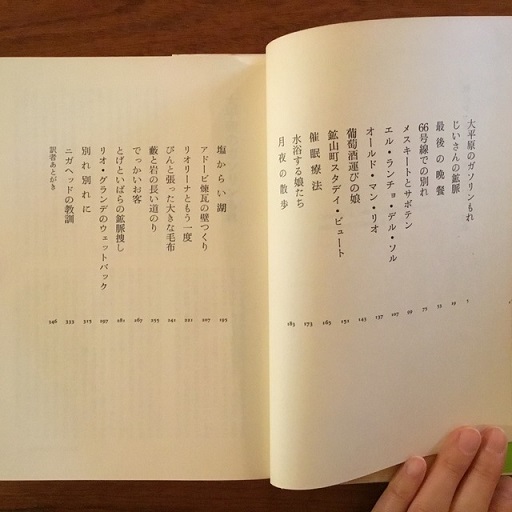 大平原のガソリンもれ 1
じいさんの鉱脈
最後の晩餐
66号線での別れ
メスキートとサボテン
エル・ランチョ・デル・ソル 107
オールド・マン・リオ 137
葡萄酒運びの娘 145
鉱山町スタデイ・ビュート 151
催眠療法 163
水浴する娘たち 173
月夜の散歩 183
塩からい湖 195
アドービ煉瓦の壁つくり 207
リオリーナともう一度 221
ぴんと張った大きな毛布 241
藪と岩の長い道のり 253
でっかいお客 267
とげといばらの鉱脈捜し 281
リオ・グランデのウェットバック 297
別れ別れに 317
ニガヘッドの教訓 333
訳者あとがき 346